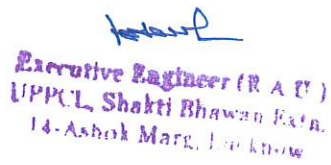 Executive Engineer (R A U)
UPPCL, Shakti Bhawan Extn.
14-Ashok Marg, Lucknow